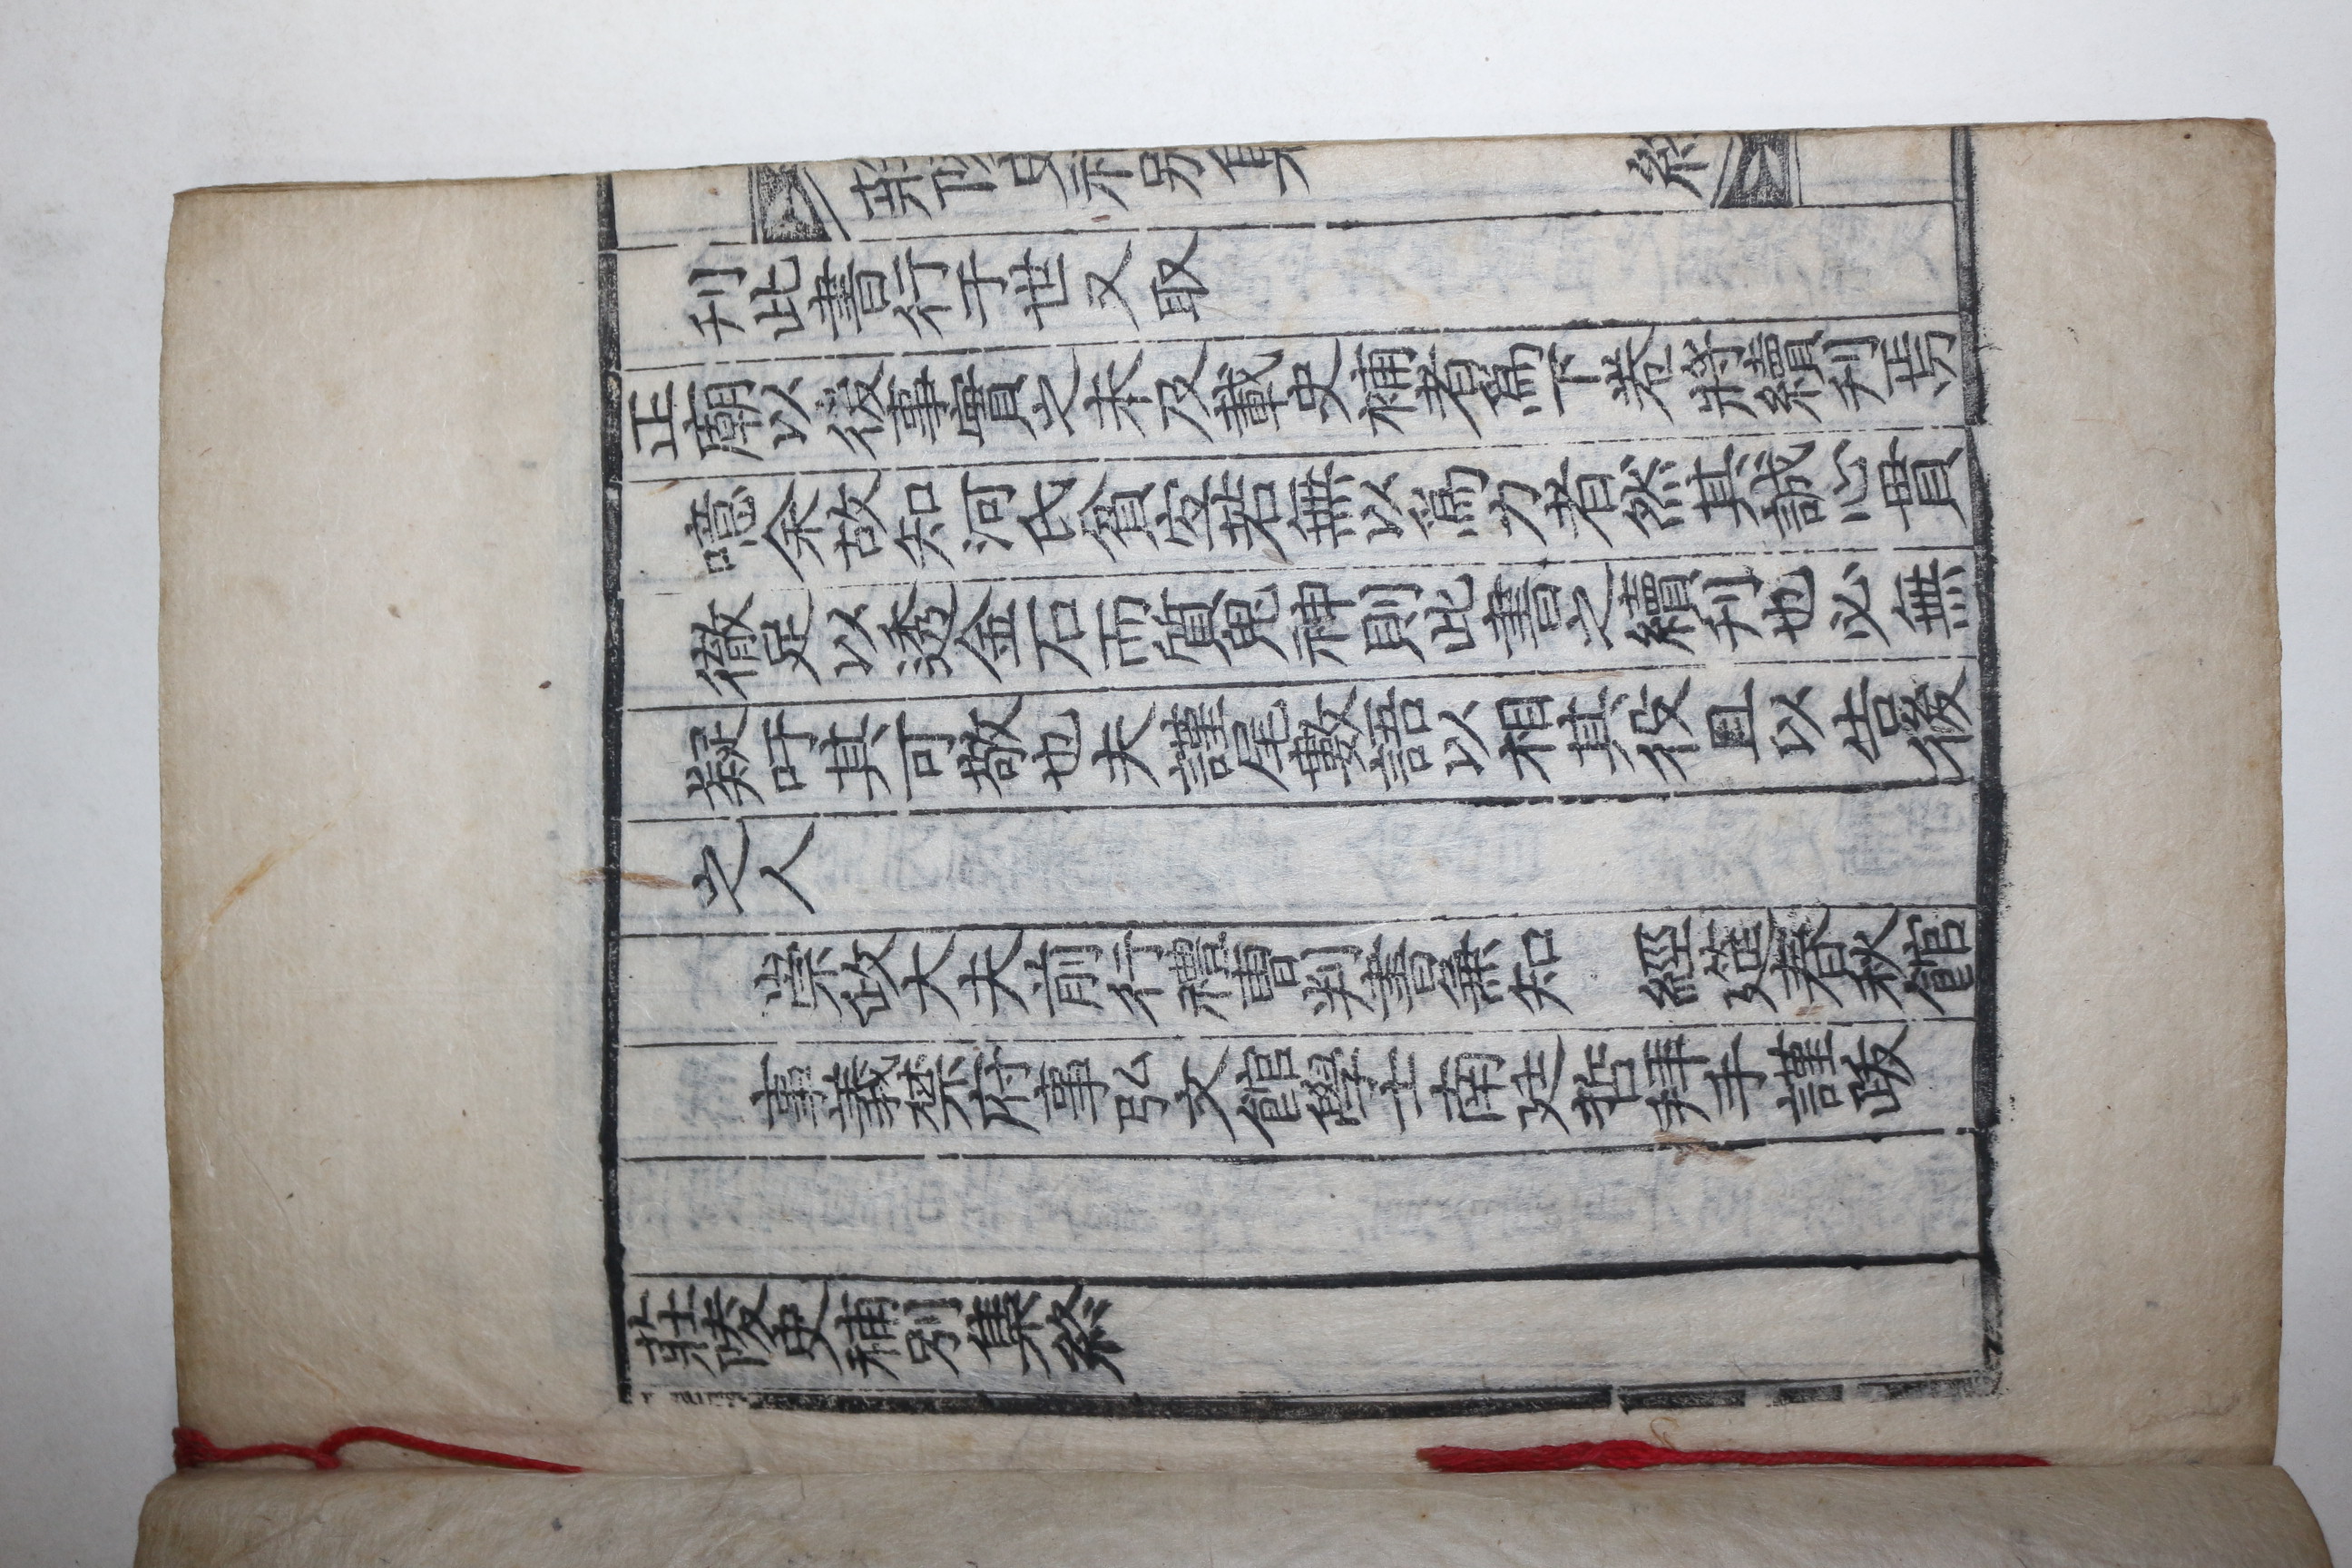 刊此書行于世又取
正廟以後事實之未及載史補者爲下卷將續刊焉
噫余故知河氏貧窶若無以爲力者然其誠心實
徹足以透金石而質鬼神則此書之續刊也必無
疑吁其可敬也夫謹尾數語以相其役且以告後
之人
崇政大夫前行禮曹判書兼知 經筵春秋館
事義禁府事弘文館學士南廷哲拜手謹跋
莊陵史補別集終